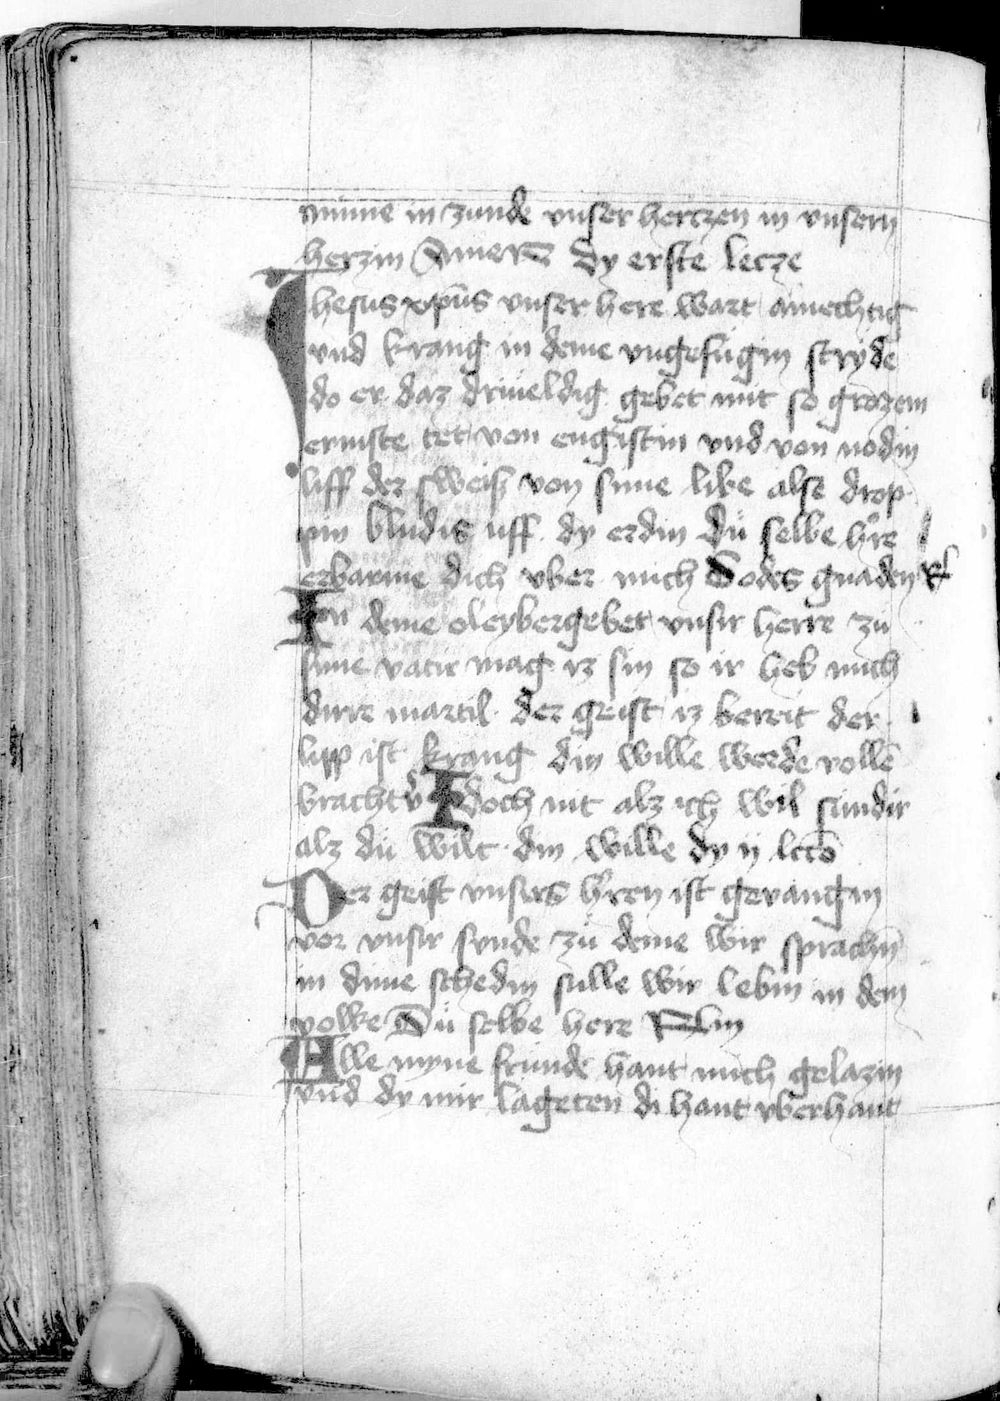 minne in zunde vnser hertzen in vnsern
herzin Amen dy erste lecze
Ihesus xpūs vnser here wart āmechtig
vnd krang in deme vngefugin stryde
do er daz driueldig gebet mit so grozem
ernniste tet von engistin vnd von nodin
liff der sweisz von sime libe alse drop
pin bludis uff dy erdin Dů selbe h're
erbarme dich vber mich Godes gnaden R'
Inn deme oleybergebet vnsir herre zu
sime vatir mag iz sin so ir heb mich
dirre martil der geist iz bereit der
lipp ist krang din wille werde vollē
bracht v' Idoch nit alz ich wil sundir
alz dů wilt din wille dy ij lectō
Der geist vnsers h'ren ist gevangin
vor vnsir sunde zů deme wir sprachī
in dime schedin sulle wir lebin in dem
volke Dů selbe here
Alle myne frunde hant mich gelazin
vnd dy mir lageten di hant vberhant